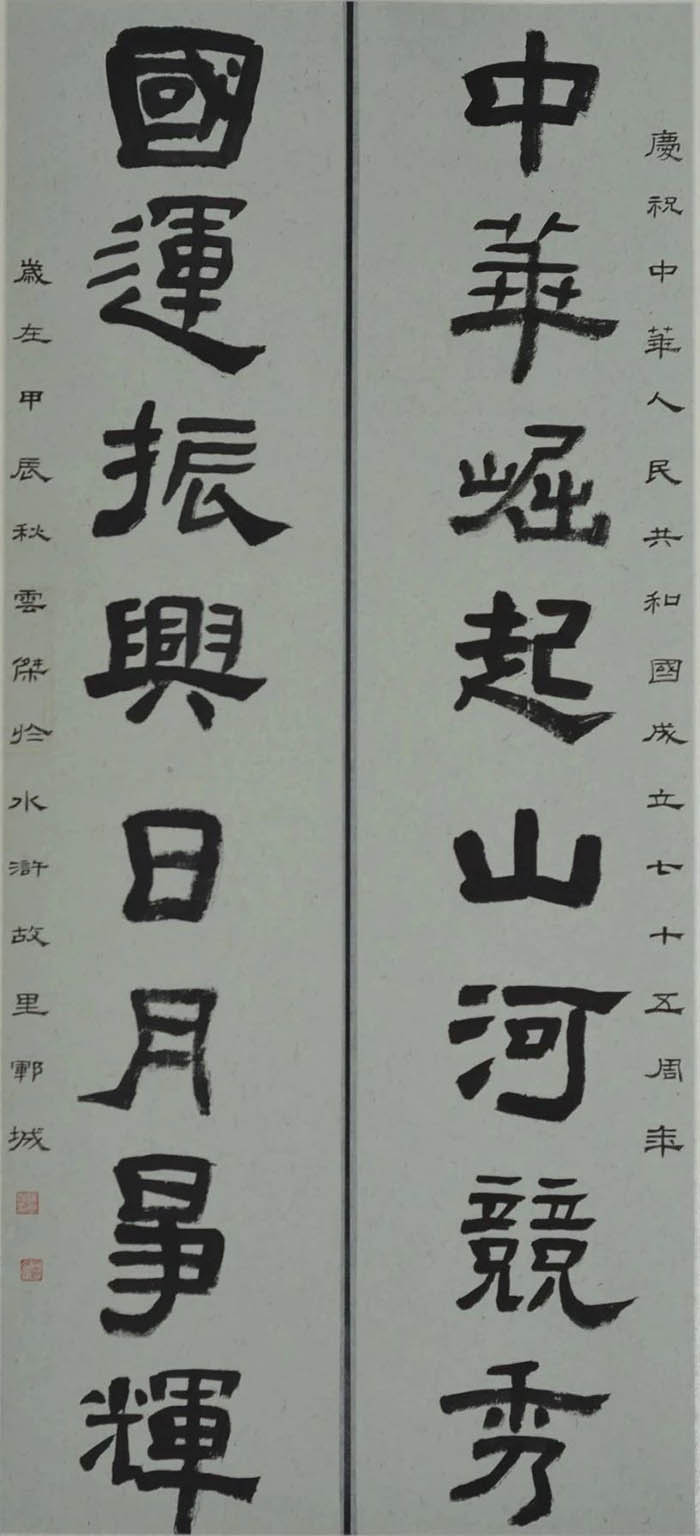 慶祝中華人民共和國成立七十五周年
中華崛起山河競秀
國運振興日月爭輝
歲在甲辰秋雲傑於水滸故里鄆城